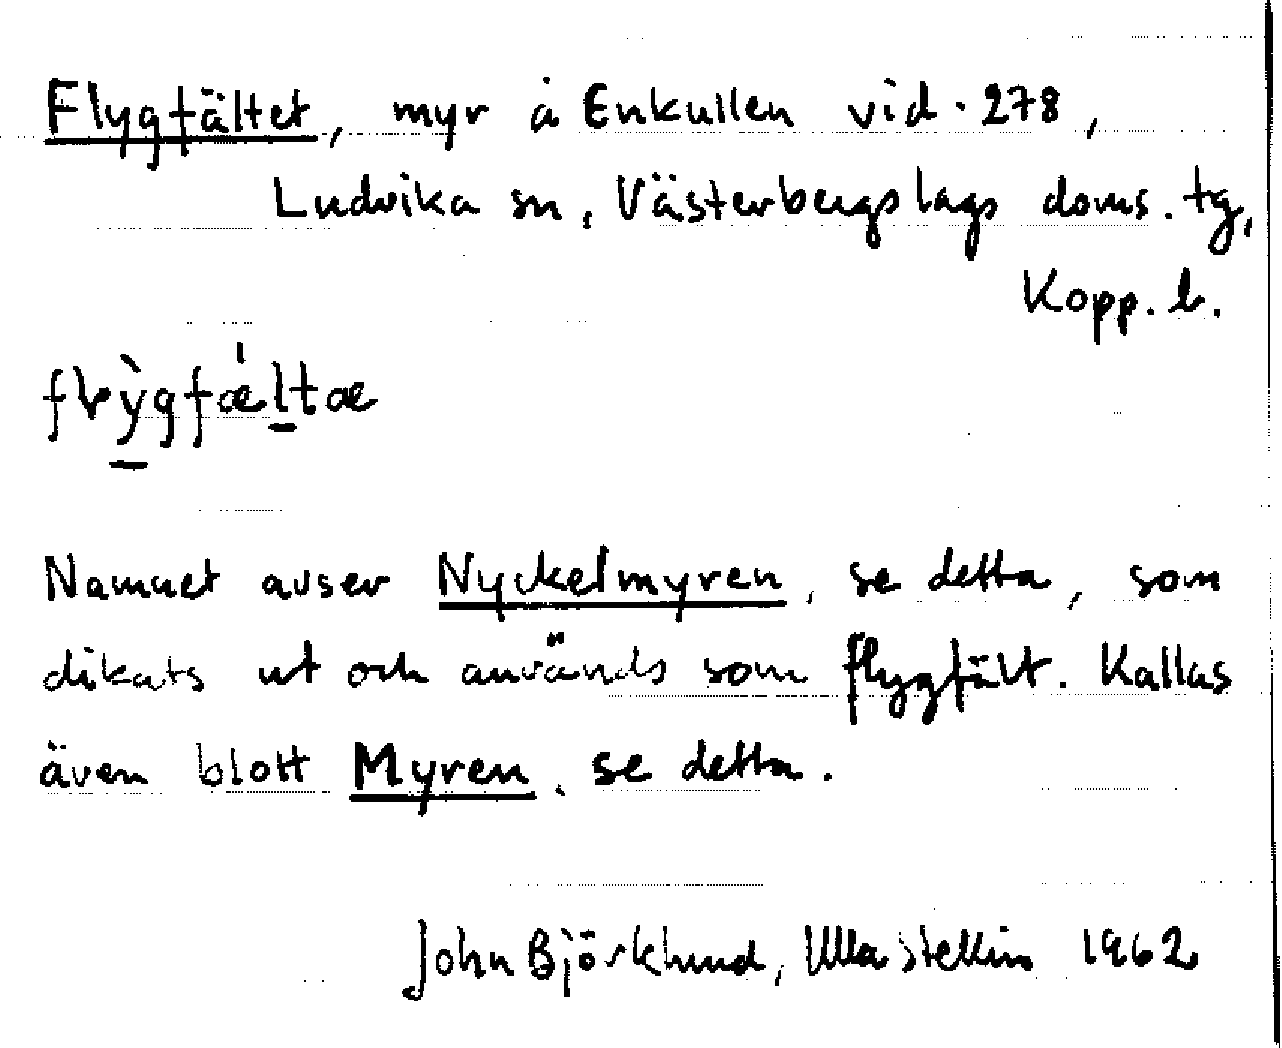 Flygfältet, myr å Enkullen vid. 278,
Ludvika sn, Västerbergslags doms. tg,
Kopp. l.
flỳgfæ̍ltæ
Namnet avser Nyckelmyren, se detta, som
dikats ut och används som flygfält. Kallas
även blott Myren, se detta.
John Björklund, Ulla Stellin 1962